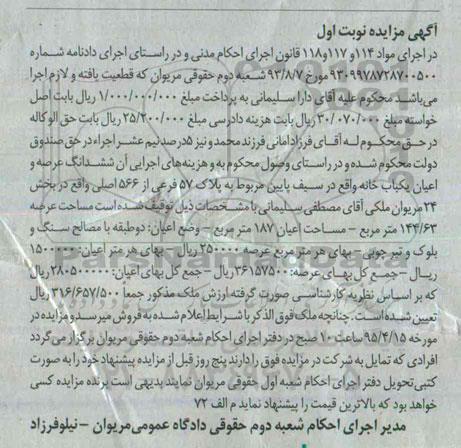 آگهی مزایده نوبت اول
در اجرای مواد ۱۱۴ و ۱۱۷ و ۱۱۸ قانون اجرای احکام مدنی و در راستای اجرای دادنامه شماره
۹۳۰۹۹۷۸۷۲۸۷۰۰۵۰۰ مورخ ۹۳/۸/۷ شعبه دوم حقوقی مریوان که قطعیت یافته و لازم اجرا
می‌باشد محکوم علیه آقای دارا سلیمانی به پرداخت مبلغ ۱/۰۰۰/۰۰۰/۰۰۰ ریال بابت اصل
خواسته مبلغ ۳۰/۰۷۰/۰۰۰ ریال بابت هزینه دادرسی مبلغ ۲۵/۲۰۰/۰۰۰ ریال بابت حق الوکاله
در حق محکوم له آقای فرزاد امانی فرزند محمد و نیز ۵درصد نیم عشر اجراء در حق صندوق
دولت محکوم شده و در راستای وصول محکوم به و هزینه‌های اجرایی آن ششدانگ عرصه و
اعیان یکباب خانه واقع در سیف پایین مربوط به پلاک ۵۷ فرعی از ۵۶۶ اصلی واقع در بخش
۲۴ مریوان ملکی آقای مصطفی سلیمانی با مشخصات ذیل توقیف شده است مساحت عرصه
۱۴۴/۶۳ متر مربع – مساحت اعیان ۱۸۷ متر مربع – وضع اعیان: دوطبقه با مصالح سنگ و
بلوک و تیر چوبی – بهای هر متر مربع عرصه ۲۵۰۰۰۰۰ ریال – بهای هر متر اعیان: ۱۵۰۰۰۰۰
ریال – جمع کل بهای عرصه: ۳۶۱۵۷۵۰۰ ریال – جمع کل بهای اعیان: ۲۸۰۵۰۰۰۰۰
که بر اساس نظریه کارشناسی صورت گرفته ارزش ملک مذکور جمعاً ۳۱۶/۶۵۷/۵۰۰ ریال
تعیین شده است. چنانچه ملک فوق الذکر با شرایط اعلام شده به فروش میرسد و مزایده در
مورخه ۹۵/۴/۱۵ ساعت ۱۰ صبح در دفتر اجرای احکام شعبه دوم حقوقی مریوان برگزار می‌گردد
افرادی که تمایل به شرکت در مزایده فوق را دارند پنج روز قبل از مزایده پیشنهاد خود را به صورت
کتبی تحویل دفتر اجرای احکام شعبه اول حقوقی مریوان نمایند بدیهی است برنده مزایده کسی
خواهد بود که بالاترین قیمت را پیشنهاد نماید م الف ۷۲
مدیر اجرای احکام شعبه دوم حقوقی دادگاه عمومی مریوان – نیلوفرزاد